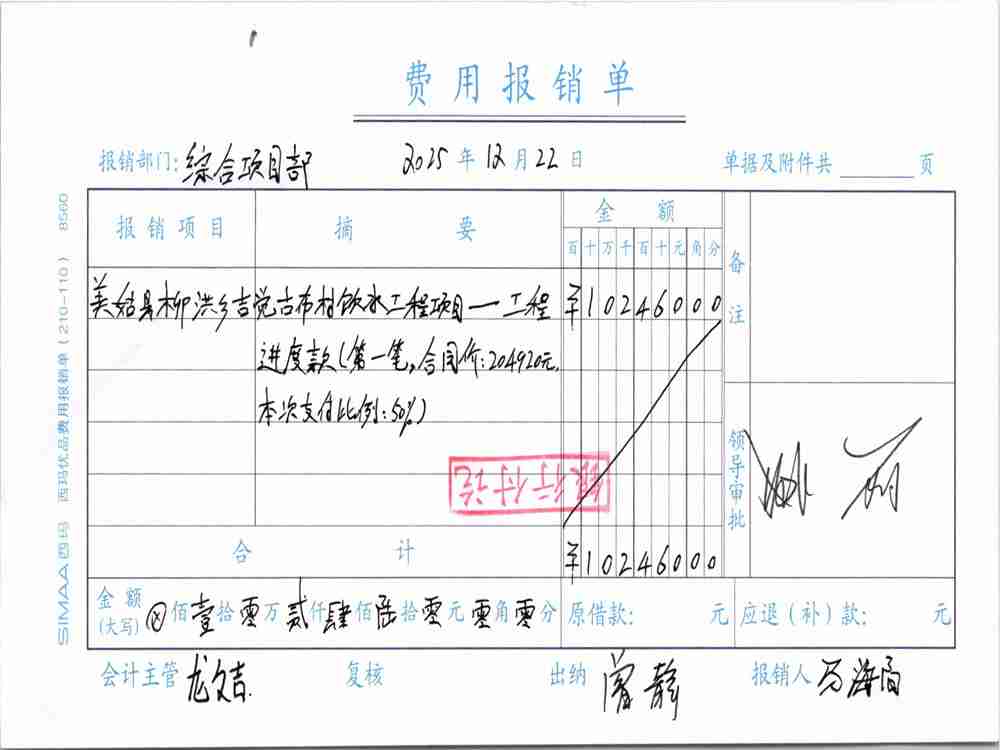 费用报销单
报销部门: 综合项目部 2025 年 12 月 22 日 单据及附件共 页
报销项目 摘要 金额 备注
百 十 万 千 百 十 元 角 分
美姑县柳洪乡吉觉古布村饮水工程项目——工程 ¥10246000
进度款(第一笔,合同价:204920元,
本次支付比例:50%)
银行付讫
领导审批
合计 ¥10246000
金额(大写) ⊗ 佰 壹 拾 零 万 贰 仟 肆 佰 陆 拾 零 元 零 角 零 分 原借款: 元 应退(补)款: 元
会计主管 龙文吉 复核 出纳 静 报销人 马海
SIMAA 西玛 西玛优品费用报销单(210-110) 8560